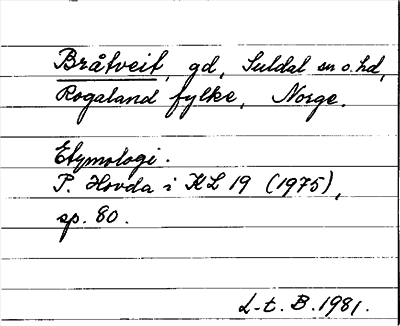 Bråtveit, gd, Suldal sn o. hd,
Rogaland fylke, Norge.
Etymologi.
P. Hovda i KL 19 (1975),
sp. 80.
L-t. B. 1981.